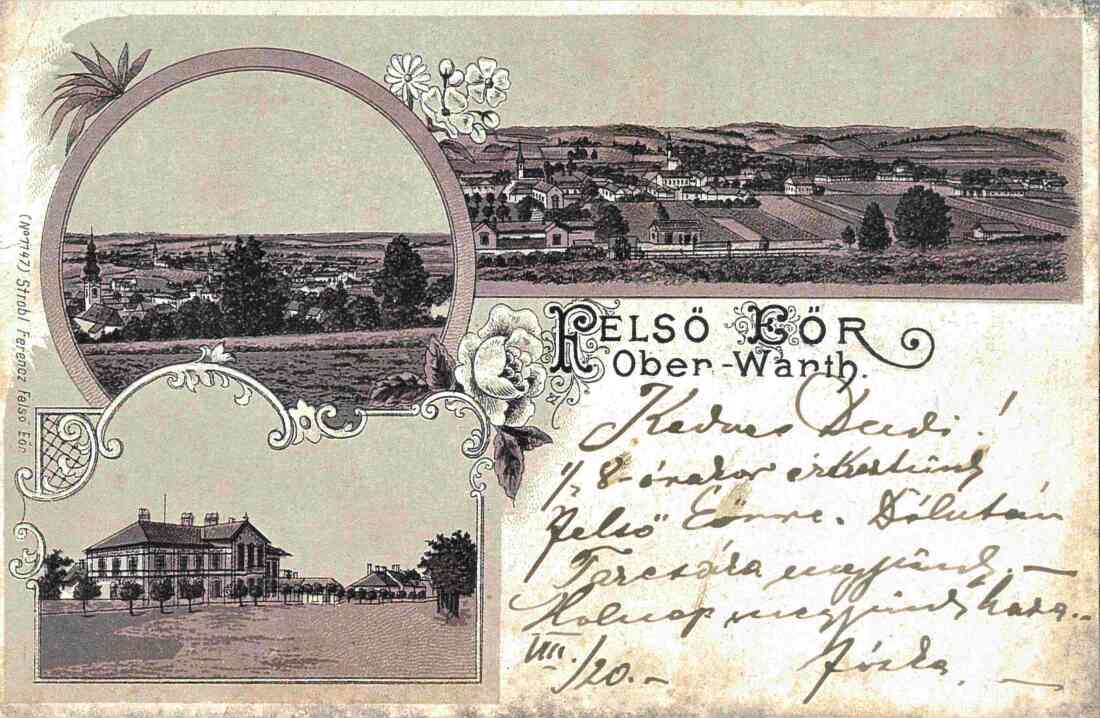 (No 7747) Strobl Ferencz Felsö Eör
FELSÖ EÖR
Ober-Warth.
Kedves Dudi!
1/2 8-órakor érkeztünk
Felső Eőrre. Délután
Tarcsára megyünk. -
Holnap megyünk haza.-
VIII./20.-
Jóska. -